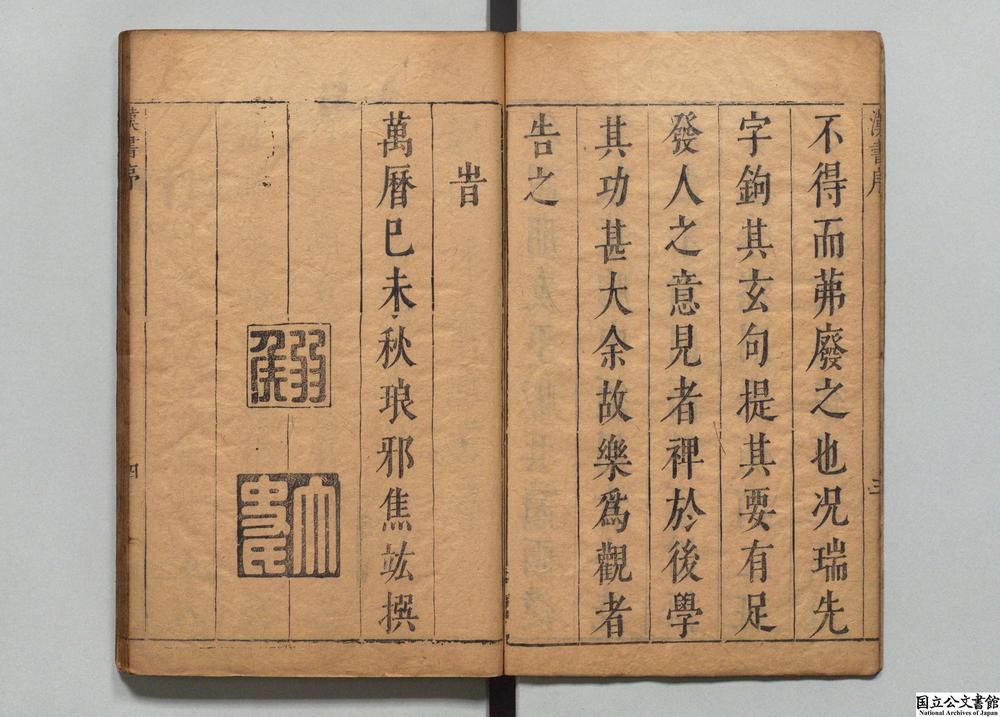 漢書序
三
不得而茀廢之也况瑞先
字鉤其玄句提其要有足
發人之意見者裨於後學
其功甚大余故樂爲觀者
告之
旹
萬曆巳未秋琅邪焦竑撰
弱侯
太史氏
漢書序
四
国立公文書館
National Archives of Japan